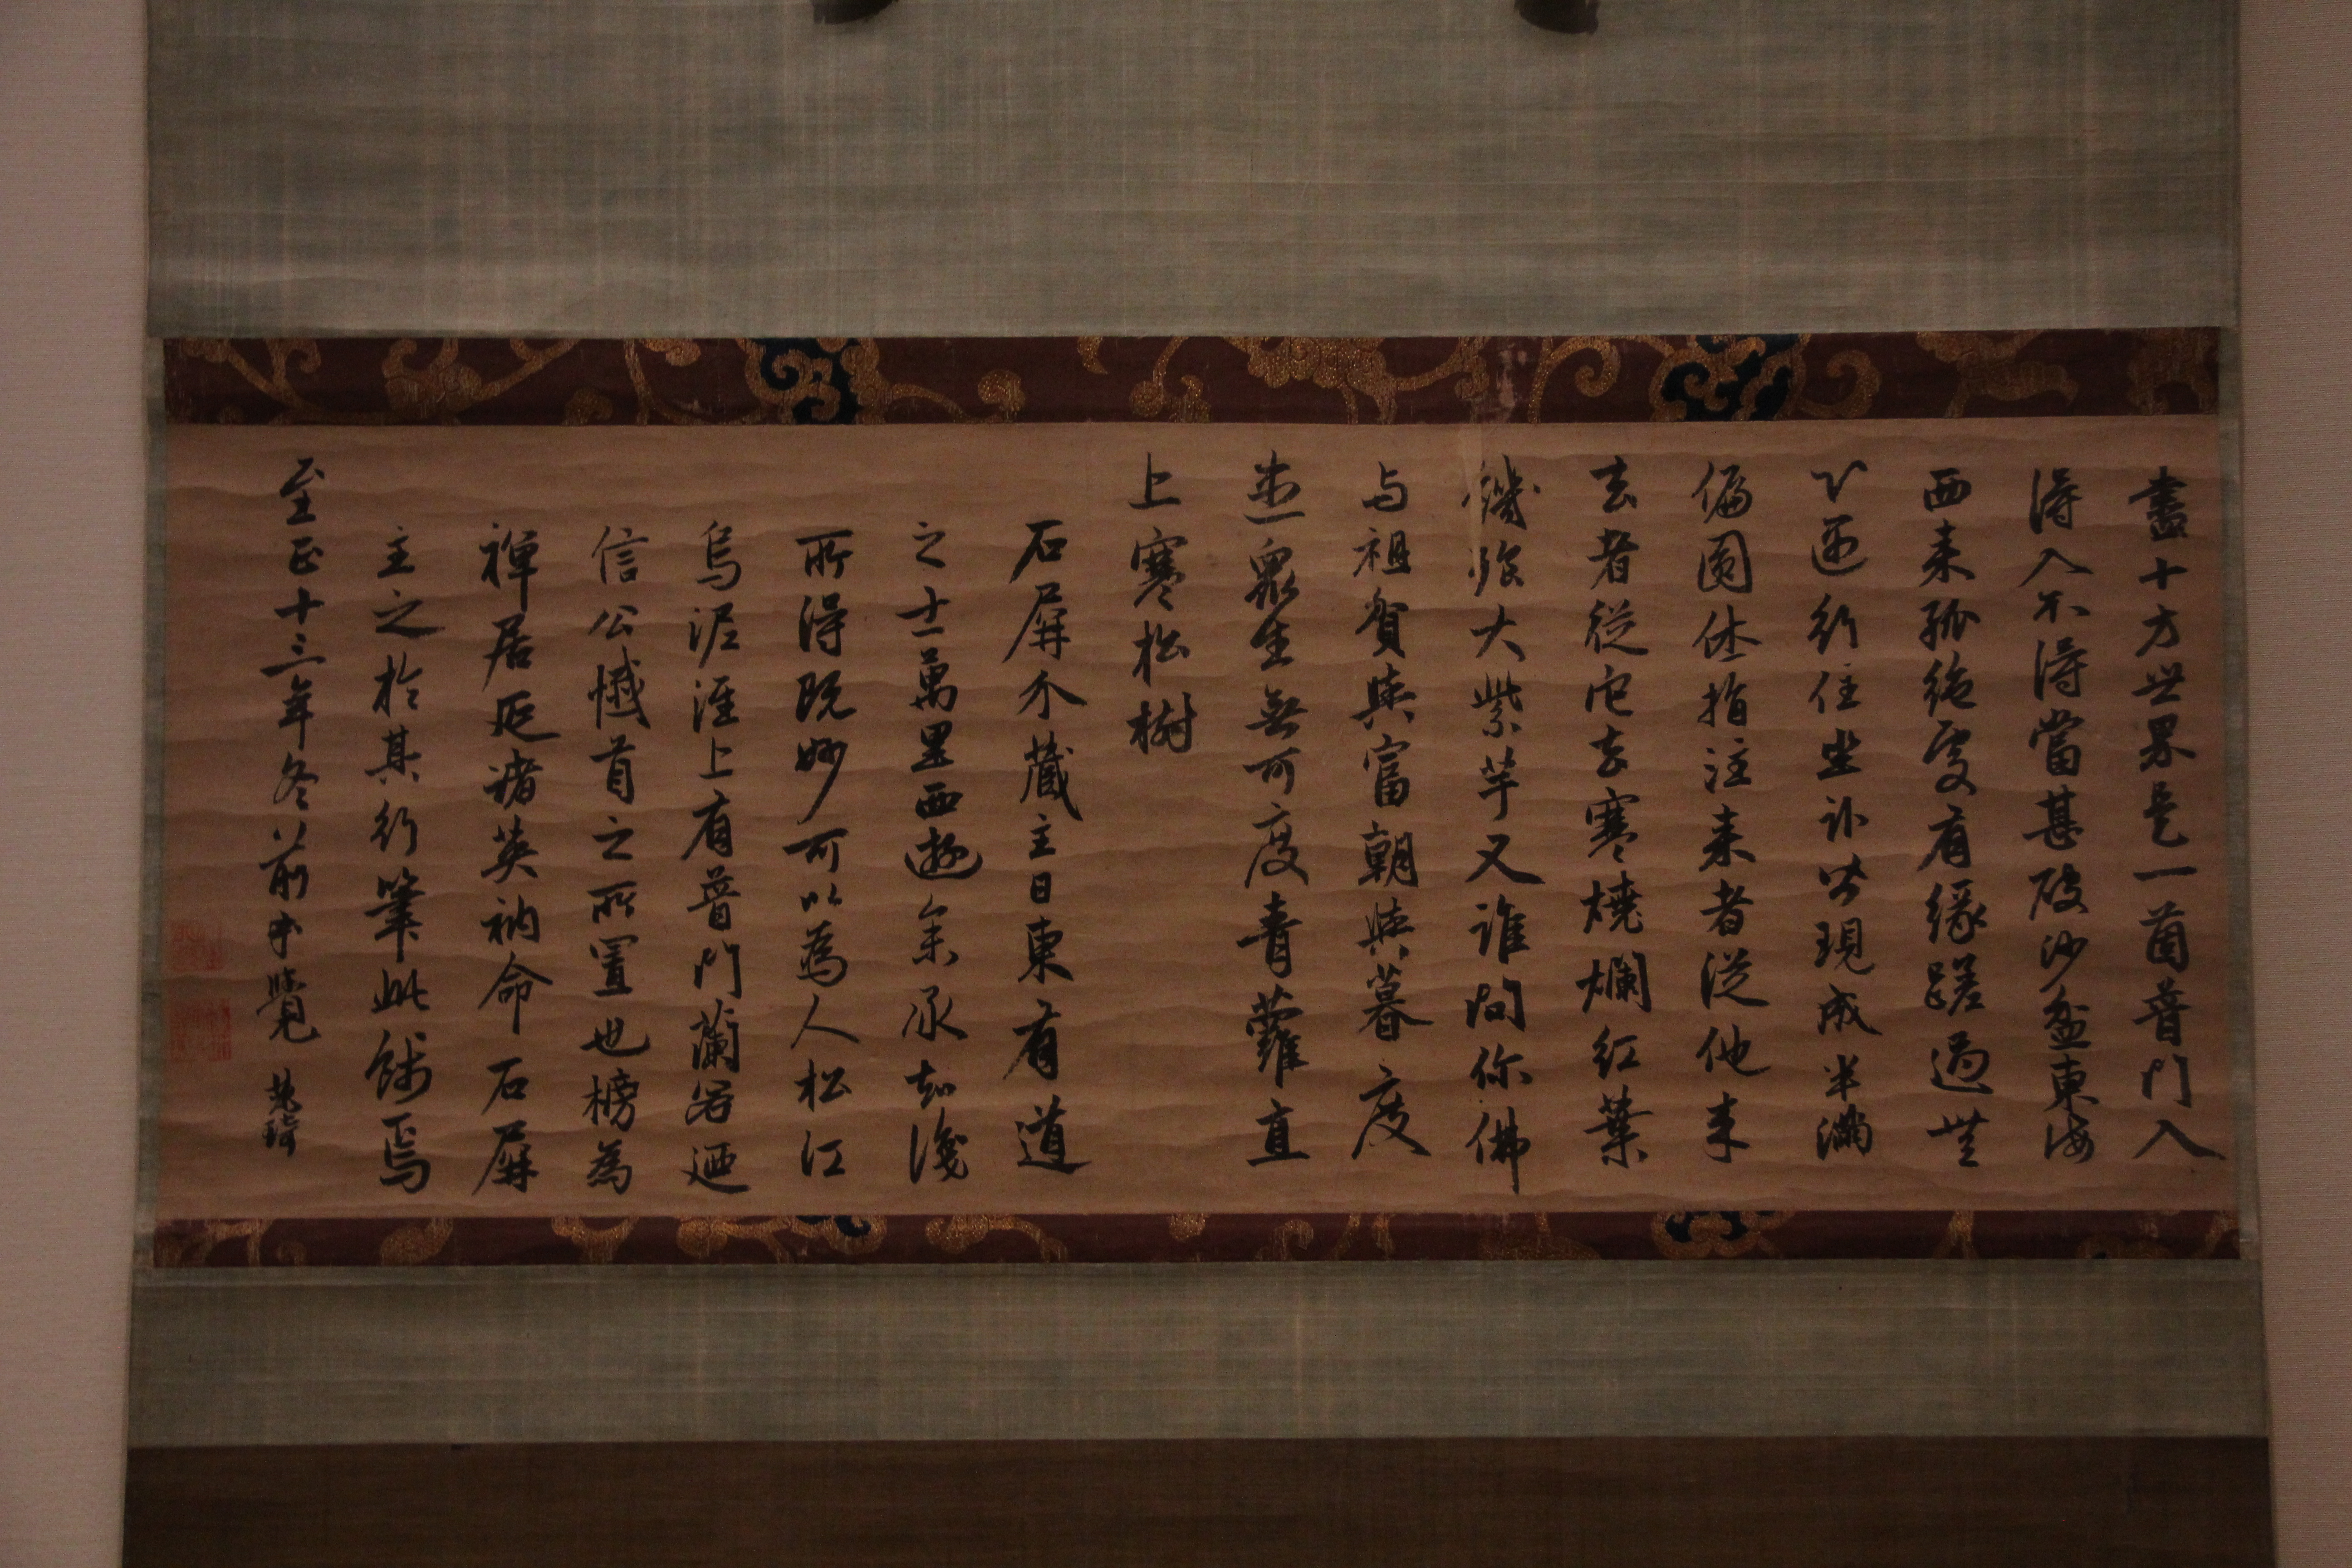 盡十方世界是一箇普門入
得入不得當甚破沙盆東海
西来孤絶處有緣蹉過無
心迊行住坐卧皆現成半滿
偏圓休指注来者従他来
去者従它去寒燒爛紅葉
饑煨大紫芋又誰問你佛
与祖貧與富朝與暮度
盡衆生無可度青蘿直
上寒松樹
石屏介藏主日東有道
之士萬里西遊余承知淺
所得既妙可以為人松江
烏泥涇上有普門蘭若迺
信公憾首之所置也榜為
禅居延諸英衲命石屏
主之於其行筆此餞焉
至正十三年冬前本覺 楚琦